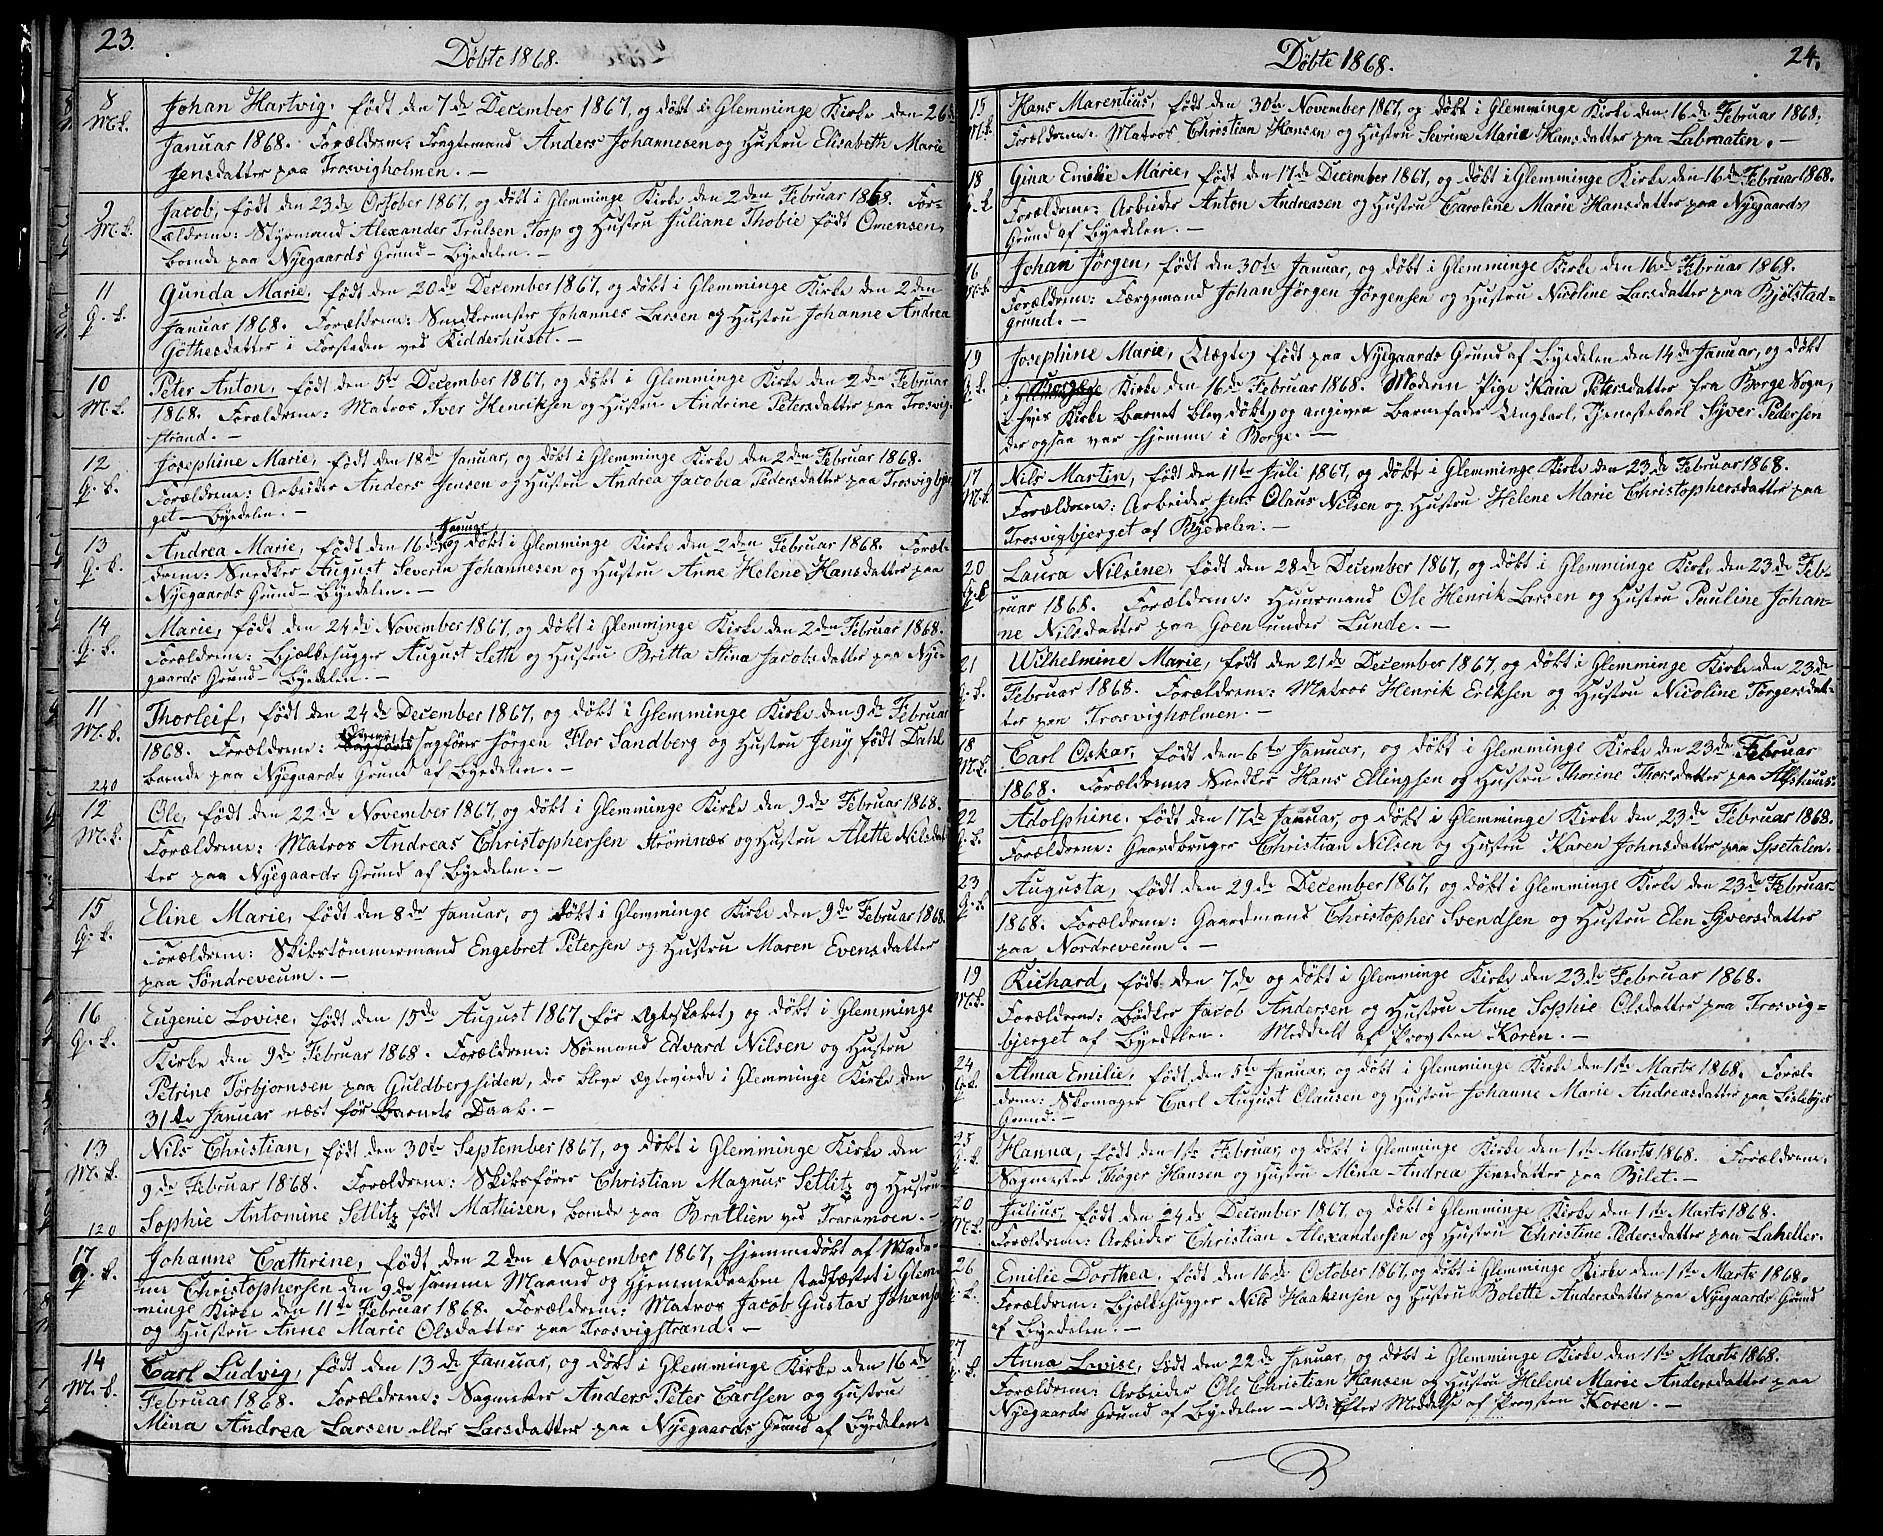 23.
Döbte 1868.
8 M.k. Johan Hartvig, födt den 7de December 1867, og döbt i Glemminge Kirke den 26de
Januar 1868. Forældrene: Fragtemand Anders Johannesen og Hustru Elisabeth Marie
Jensdatter paa Trosvigholmen. —
9 M.k. Jacob, födt den 23de October 1867, og döbt i Glemminge Kirke den 2den Februar 1868. For-
ældrene: Styrmand Alexander Trulsen Torp og Hustru Juliane Thobie födt Omensen,
boende paa Nyegaards Grund – Byedelen. —
11 Q.k. Gunda Marie, födt den 20de December 1867, og döbt i Glemminge Kirke den 2den
Januar 1868. Forældrene: Snedkermester Johannes Larsen og Hustru Johanne Andrea
Göthesdatter i Forstaden ved Kidderhuset. —
10 M.k. Peter Anton, födt den 5te December 1867, og döbt i Glemminge Kirke den 2den Februar
1868. Forældrene: Matros Iver Henriksen og Hustru Andrine Petersdatter paa Trosvig-
strand. —
12 Q.k. Josephine Marie, födt den 18de Januar, og döbt i Glemminge Kirke den 2den Februar 1868.
Forældrene: Arbeider Anders Jensen og Hustru Andrea Jacobea Pedersdatter paa Trosvigbjer-
get – Byedelen. —
13 Q.k. Andrea Marie, födt den 16de Januar og döbt i Glemminge Kirke den 2den Februar 1868. Foræl-
drene: Snedker August Severin Johannesen og Hustru Anne Helene Hansdatter paa
Nyegaards Grund – Byedelen. —
14 Q.k. Marie, födt den 24de November 1867, og döbt i Glemminge Kirke den 2den Februar 1868.
Forældrene: Bjælkehugger August Seth og Hustru Britta Stina Jacobsdatter paa Nye-
gaards Grund – Byedelen. —
11 M.k. Thorleif, födt den 24de December 1867, og döbt i Glemminge Kirke den 9de Februar
1868. Forældrene: Sagförer Jörgen Flor Sandberg og Hustru Jeny födt Dahl
240 boende paa Nyegaards Grund af Byedelen. —
12 M.k. Ole, födt den 22de November 1867, og döbt i Glemminge Kirke den 9de Februar 1868.
Forældrene: Matros Andreas Christophersen Strömnæs og Hustru Alette Nilsdat-
ter paa Nyegaards Grund af Byedelen. —
15 Q.k. Eline Marie, födt den 8de Januar, og döbt i Glemminge Kirke den 9de Februar 1868.
Forældrene: Skibstömmermand Engebret Petersen og Hustru Maren Evensdatter
paa Söndreveum. —
16 Q.k. Eugenie Lovise, födt den 15de August 1867 (för Ægteskabet) og döbt i Glemminge
Kirke den 9de Februar 1868. Forældrene: Sömand Edvard Nilsen og Hustru
Petrine Torbjornsen paa Guldbergsiden, der bleve ægteviede i Glemminge Kirke den
31te Januar næst för Barnets Daab. —
13 M.k. Nils Christian, födt den 30te September 1867, og döbt i Glemminge Kirke den
9de Februar 1868. Forældrene: Skibsförer Christian Magnus Setlitz og Hustru
120 Sophie Antomine Setlitz födt Mathisen, boende paa Bratlien ved Traramoen. —
17 Q.k. Johanne Cathrine, födt den 2den November 1867, hjemmedöbt af Mada-
me Christophersen den 9de samme Maaned og Hjemmedaaben stadfæstet i Glem-
minge Kirke den 11te Februar 1868. Forældrene: Matros Jacob Gustav Johansen
og Hustru Anne Marie Olsdatter paa Trosvigstrand. —
14 M.k. Carl Ludvig, födt den 13de Januar, og döbt i Glemminge Kirke den 16de
Februar 1868. Forældrene: Sagmester Anders Peter Carlsen og Hustru
Mina Andrea Larsen eller Larsdatter paa Nyegaards Grund af Byedelen
Döbte 1868.
24.
15 M.k. Hans Marentius, födt den 30te November 1867, og döbt i Glemminge Kirke den 16de Februar 1868.
Forældrene: Matros Christian Hansen og Hustru Severine Marie Hansdatter paa Labraaten. —
18 Q.k. Gina Emilie Marie, födt den 17de December 1867, og döbt i Glemminge Kirke den 16de Februar 1868.
Forældrene: Arbeider Anton Andreasen og Hustru Caroline Marie Hansdatter paa Nyegaards
Grund af Byedelen. —
16 M.k. Johan Jörgen, födt den 30te Januar, og döbt i Glemminge Kirke den 16de Februar 1868.
Forældrene: Færgemand Johan Jörgen Jörgensen og Hustru Nicoline Larsdatter paa Bjölstad-
grund. —
19 Q.k. Josephine Marie, (Uægte) födt paa Nyegaards Grund af Byedelen den 14de Januar, og döbt
i Borge Kirke den 16de Februar 1868. Moderen Pige Karia Petersdatter fra Borge Sogn,
(i hvis Kirke Barnet blev döbt) og angiven Barnefader Ungkarl, Tjenestekarl Syver Pedersen
der ogsaa var hjemme i Borge. —
17 M.k. Nils Martin, födt den 11te Juli 1867, og döbt i Glemminge Kirke den 23de Februar 1868.
Forældrene: Arbeider Jens Olaus Nilsen og Hustru Helene Marie Christophersdatter paa
Trosvigbjerget af Byedelen. —
20 Q.k. Laura Nilsine, födt den 28de December 1867, og döbt i Glemminge Kirke den 23de Feb-
ruar 1868. Forældrene: Huusmand Ole Henrik Larsen og Hustru Pauline Johan-
ne Nilsdatter paa Goen under Lunde. —
21 Q.k. Wilhelmine Marie, födt den 21de December 1867, og döbt i Glemminge Kirke den 23de
Februar 1868. Forældrene: Matros Henrik Eriksen og Hustru Nicoline Torgersdat-
ter paa Trosvigholmen. —
18 M.k. Carl Oskar, födt den 6te Januar, og döbt i Glemminge Kirke den 23de Februar
1868. Forældrene Snedker Hans Ellingsen og Hustru Thorine Thorsdatter paa Alshuus.
22 Q.k. Adolphine, födt den 17de Januar, og döbt i Glemminge Kirke den 23de Februar 1868.
Forældrene: Gaardbruger Christian Nilsen og Hustru Karen Johnsdatter paa Spetalen.
23 Q.k. Augusta, födt den 29de December 1867, og döbt i Glemminge Kirke den 23de Februar
1868. Forældrene: Gaardmand Christopher Svendsen og Hustru Elen Syversdatter
paa Nordreveum. —
19 M.k. Richard, födt den 7de og döbt i Glemminge Kirke den 23de Februar 1868.
Forældrene: Bödker Jacob Andersen og Hustru Anne Sophie Olsdatter paa Trosvig-
bjerget af Byedelen. Meddelt af Provsten Koren. —
24 Q.k. Alma Emilie, födt den 5te Januar, og döbt i Glemminge Kirke den 1ste Marts 1868. Foræl-
drene: Skomager Carl August Olausen og Hustru Johanne Marie Andreasdatter paa Lislebyes
Grund. —
25 Q.k. Hanna, födt den 1ste Februar, og döbt i Glemminge Kirke den 1ste Marts 1868. Forældrene:
Sagmester Töger Hansen og Hustru Mina Andrea Jensdatter paa Bilet. —
20 M.k. Julius, födt den 24de December 1867, og döbt i Glemminge Kirke den 1ste Marts 1868.
Forældrene: Arbeider Christian Alexandersen og Hustru Christine Pedersdatter paa Lakeller.
26 Q.k. Emilie Dorthea, födt den 16de October 1867, og döbt i Glemminge Kirke den 1ste Marts 1868.
Forældrene: Bjælkehugger Nils Haakensen og Hustru Bolette Andersdatter paa Nyegaards Grund
af Byedelen. —
27 Q.k. Anna Lovise, födt den 22de Januar, og döbt i Glemminge Kirke den 1ste Marts 1868.
Forældrene: Arbeider Ole Christian Hansen og Hustru Helene Marie Andersdatter paa
Nyegaards Grund af Byedelen – NB. Efter Meddelse af Provsten Koren. —